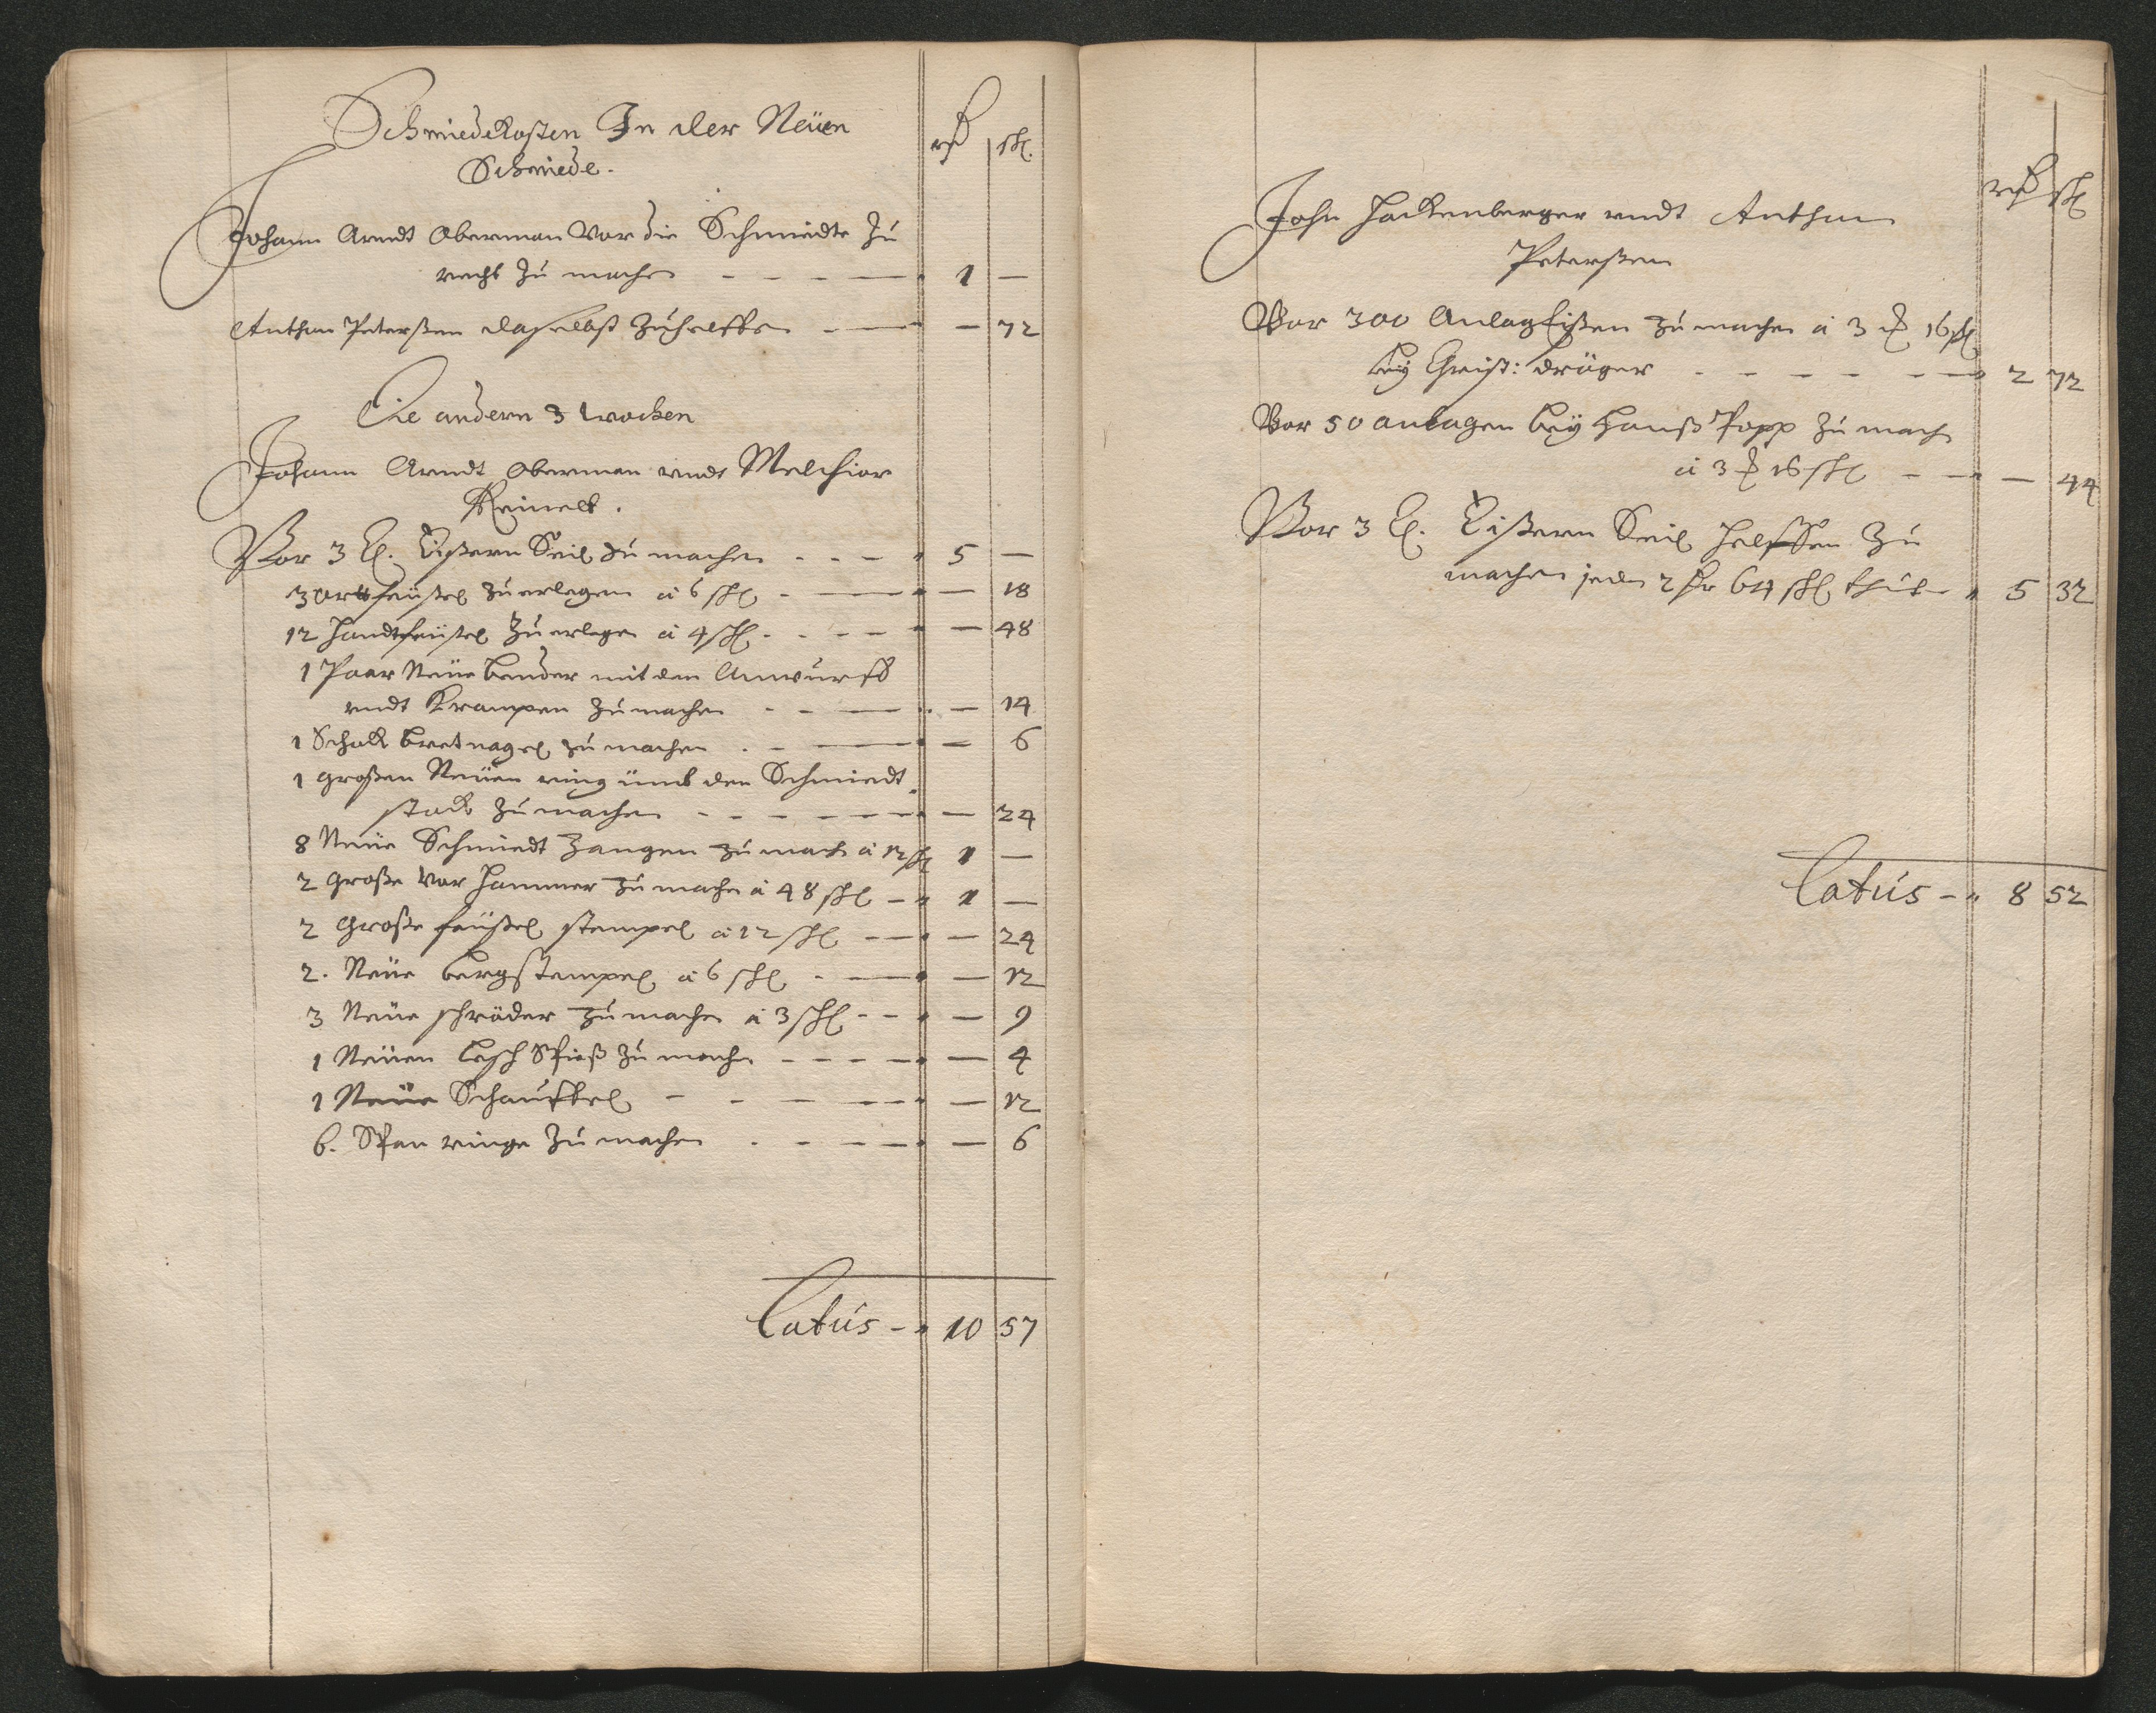 Schmiedekosten In der Neüen
Schmiede.
rß | sk.
Johann Arendt Oberman Vor die Schmiedte zu
recht zu machen - - - - 1 —
Anthon Peterßen daselbst zu helffen - — — 72
Die andern 3 wochen
Johann Arendt Oberman undt Melchior
Reinelt.
Vor 3 Eißern Seil zu machen - - - 5 —
3 Ortfeüstel zu erlegen á 6 sk - — — 18
12 handtfeüstel zu erlegen á 4 sk - - - - — 48
1 Paar Neüe bender mit den Anwurff
undt Krampen zu machen - - — — 14
1 Schock bretnagel zu machen . - — — 6
1 großen Neüen ring ümb den Schmiedt
stock zu machen - - - - — — 24
8 Neüe Schmiedt Zangen zu mach á 12 sk 1 —
2 große Vor hammer zu mache á 48 sk - 1 —
2 Große feüstel stempel á 12 sk — — 24
2. Neüe bergstempel á 6 sk - — — 12
3 Neüe schröder zu machen á 3 sk - - — 9
1 Neüen lesch Spieß zu machen - - - - — 4
1 Neüe Schauffel - - — — — 12
6. Span ringe zu machen . - - - — 6
Latus - 10 57
rß sk
John Hackenberger undt Anthon
Peterßen
Vor 300 Anlag Eißen zu machen á 3 16 sk
beÿ Christ: dräger - - - - - — 2 72
Vor 50 anlagen beÿ Hanß Popp zu mach
á 3 16 sk - — — 44
Vor 3 Eißern Seil helffen zu
machen jeden 64 sk thut - 5 32
Latus - 8 52